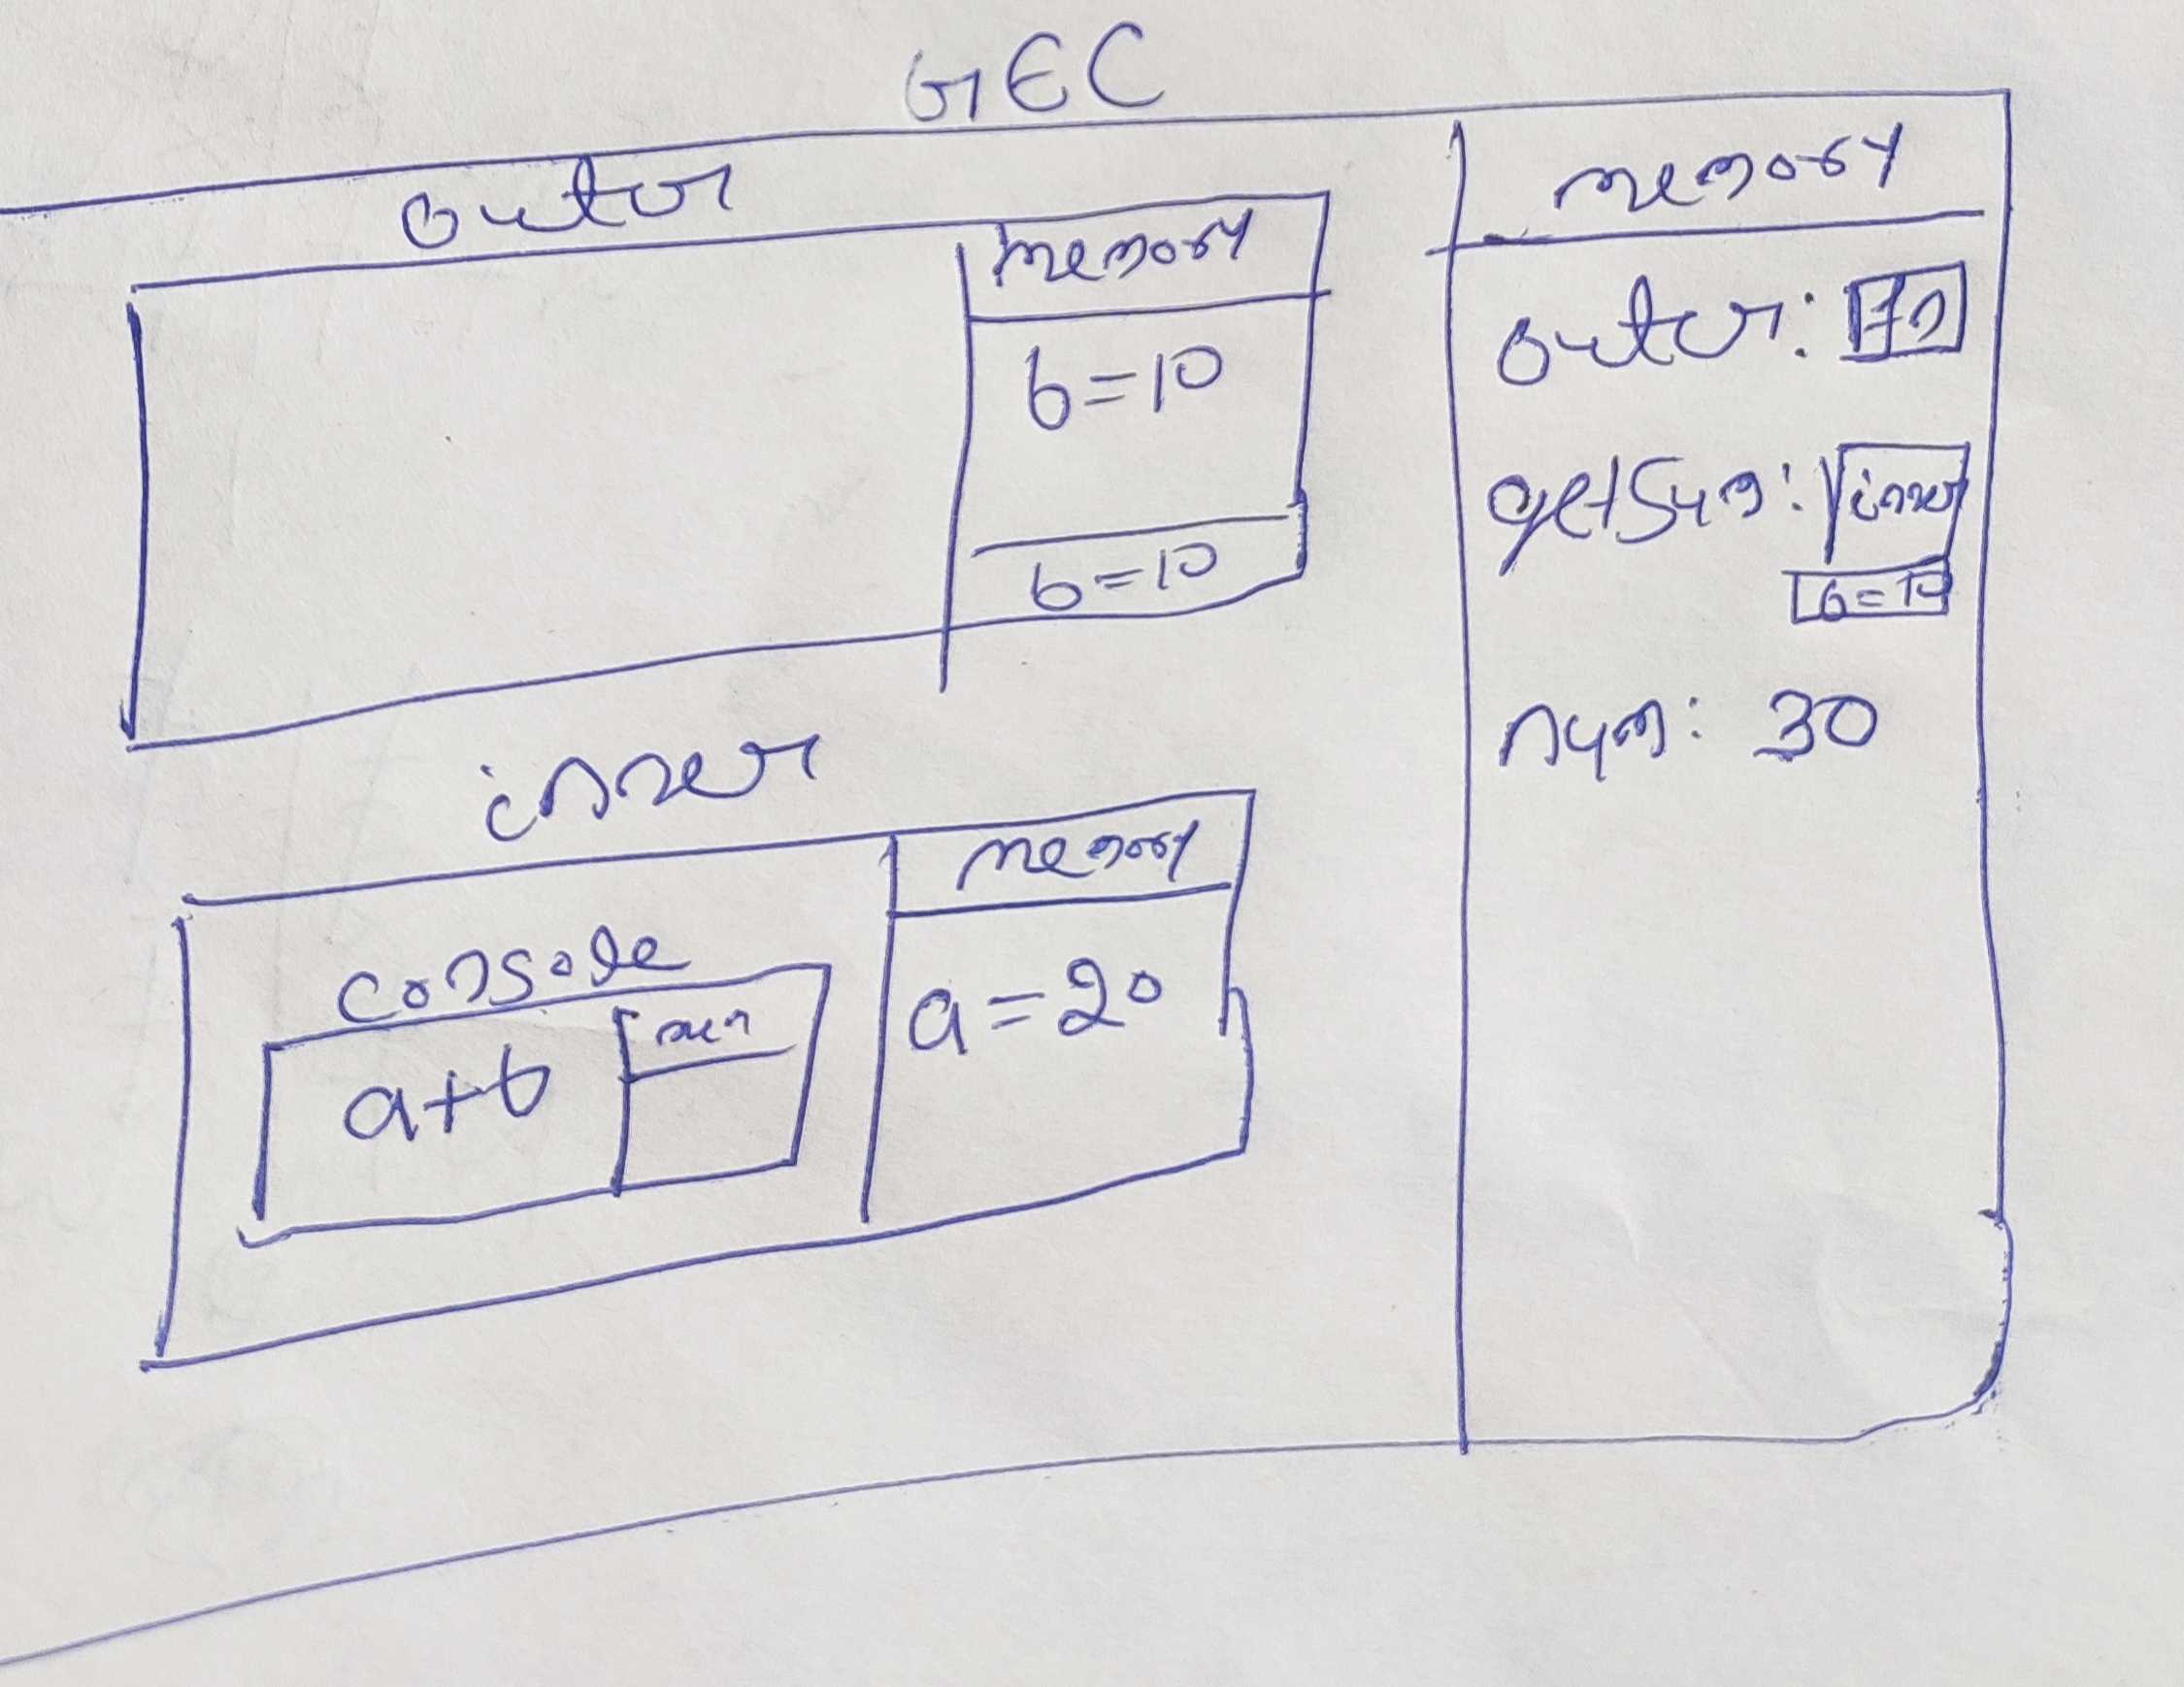 GEC
outer
memory
b=10
b=10
inner
memory
a=20
console
mem
a+b
memory
outer: Fn
getSum: inner
b=10
num: 30